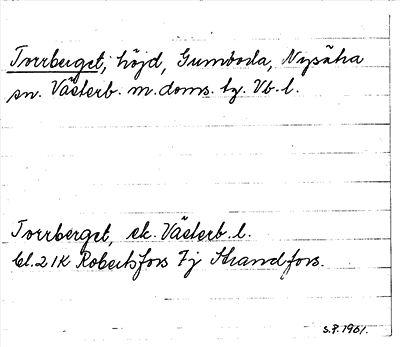 Torrberget, höjd, Gumboda, Nysätra
sn. Västerb. m. doms. tg. Vb. l.
Torrberget, ek. Västerb. l.
bl. 21K Robertsfors 7j Strandfors.
S.P. 1961.